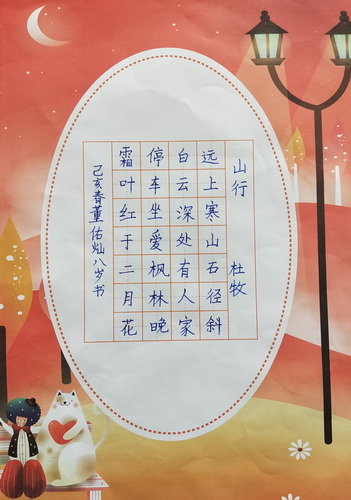 山行 杜牧
远上寒山石径斜
白云深处有人家
停车坐爱枫林晚
霜叶红于二月花
己亥春董佑灿八岁书